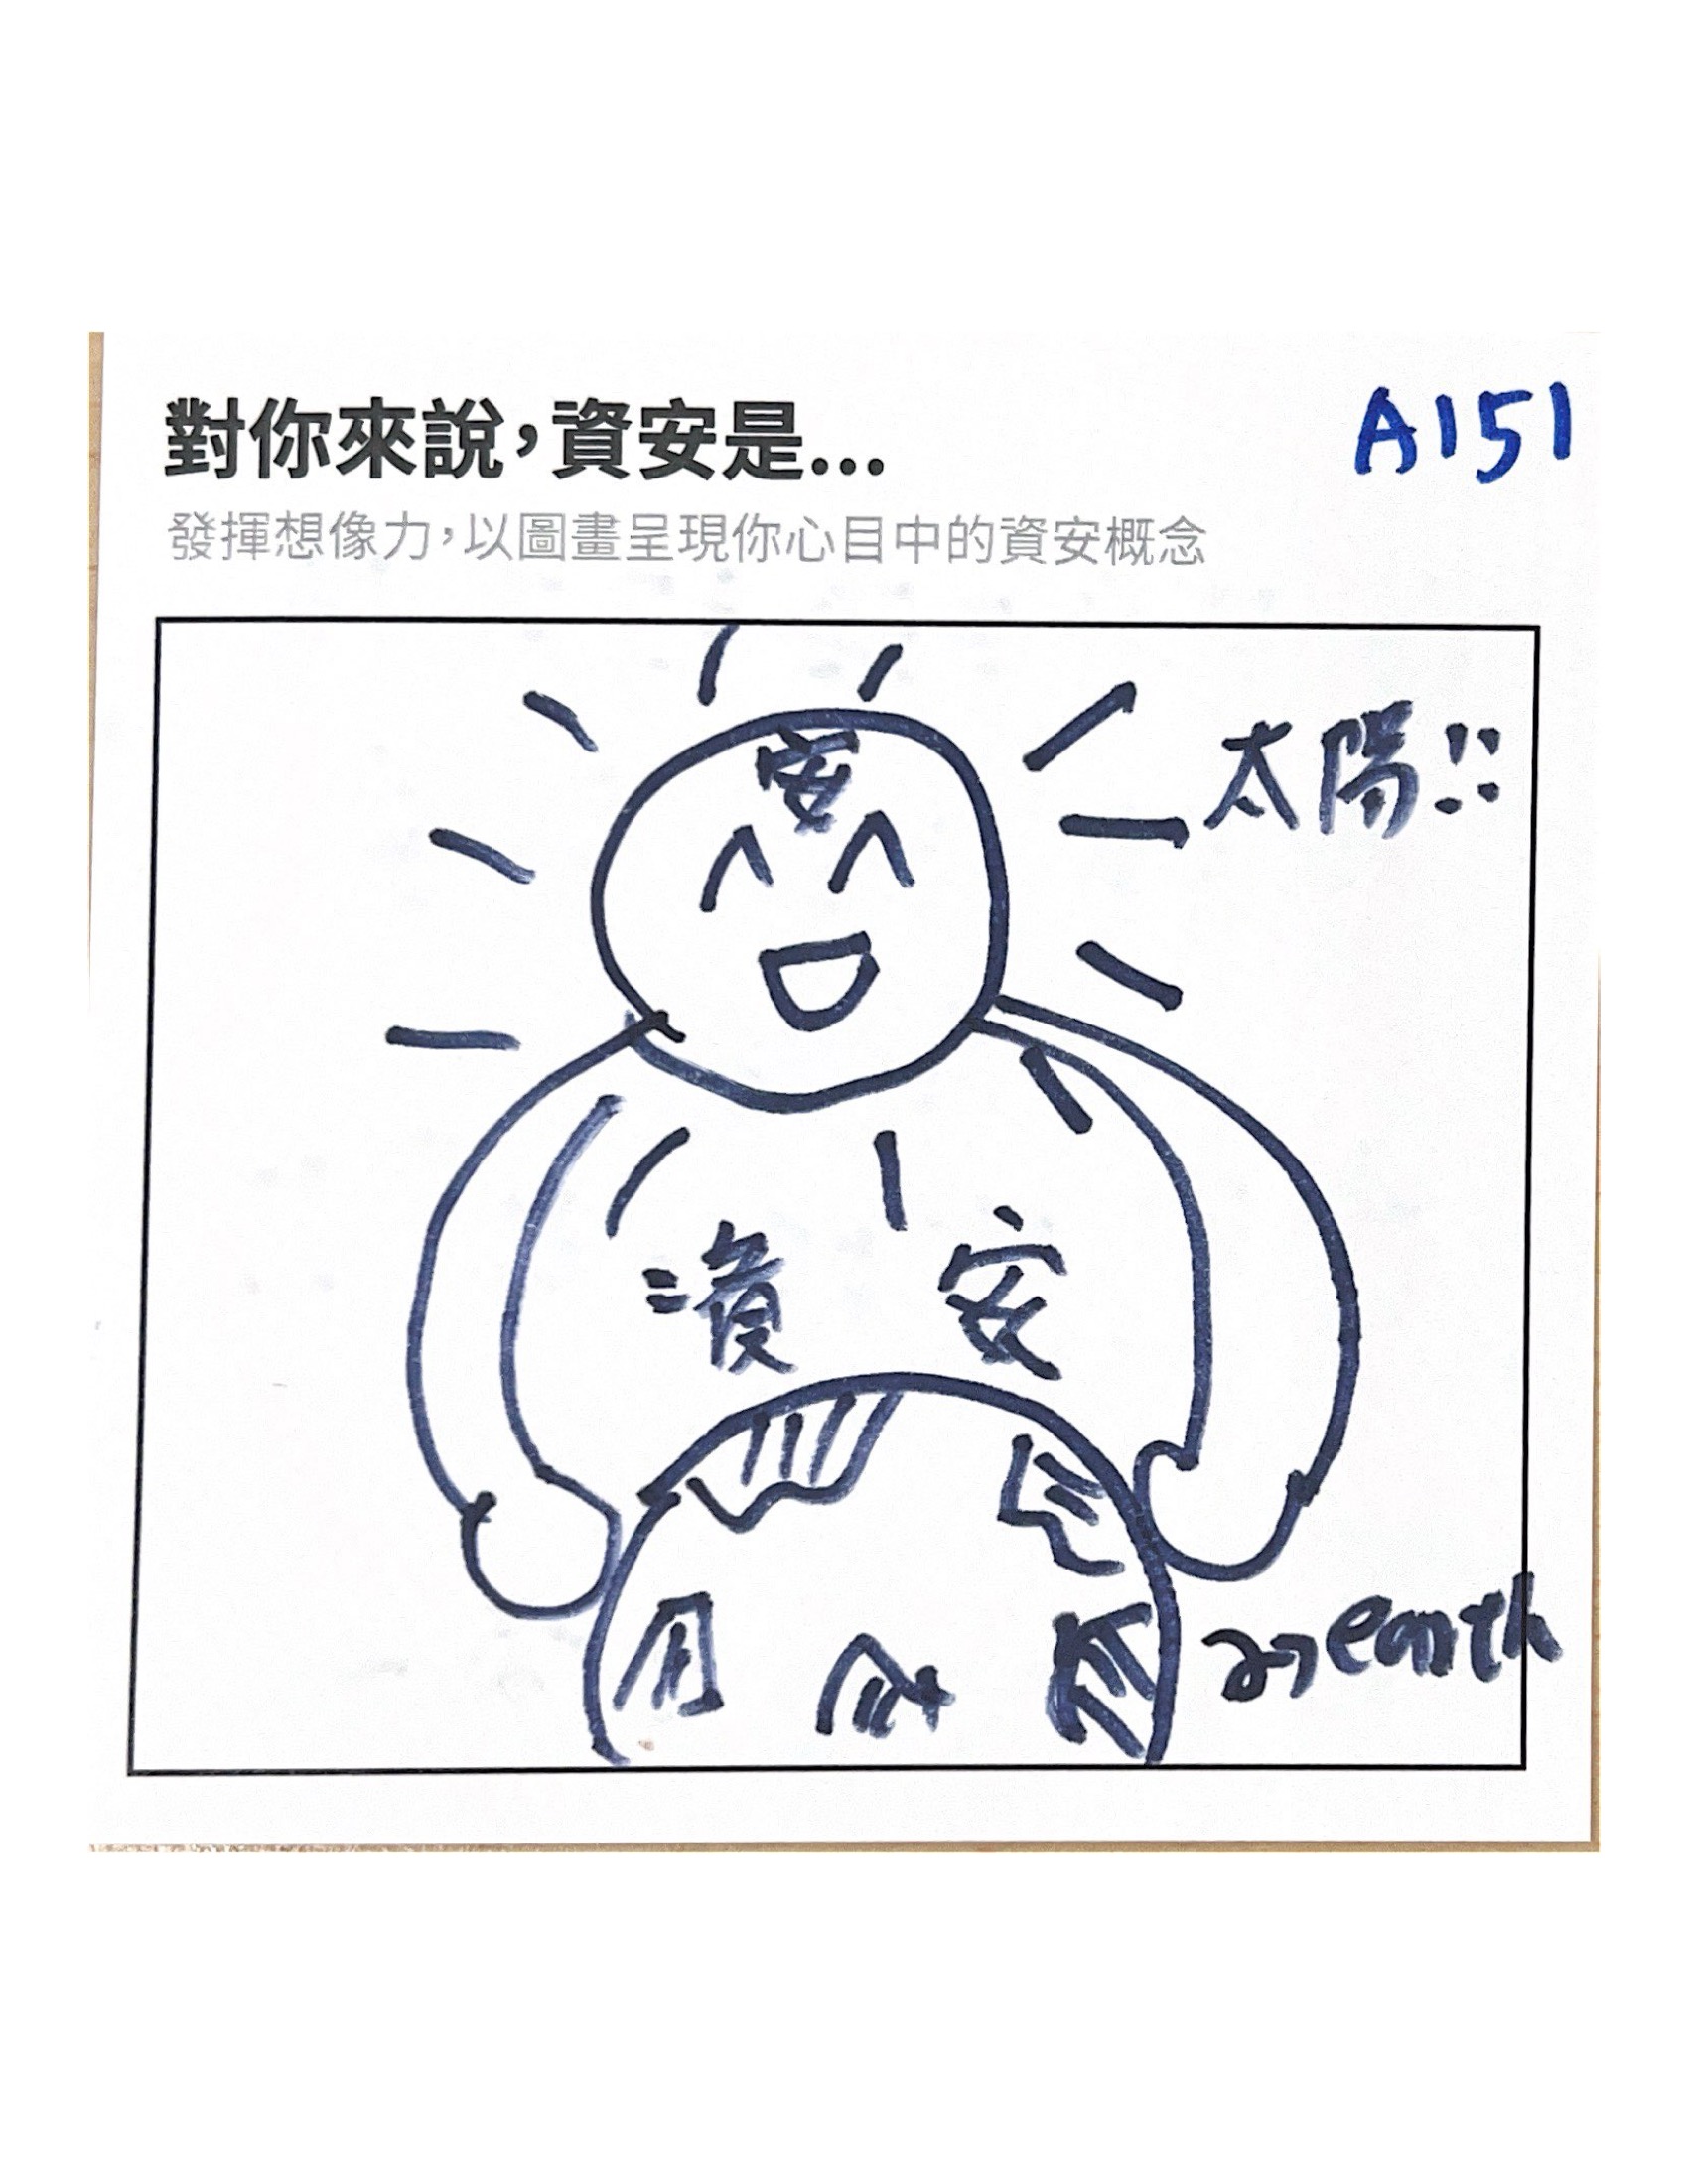 對你來說，資安是...
A151
發揮想像力，以圖畫呈現你心目中的資安概念
安
太陽!!
資安
earth